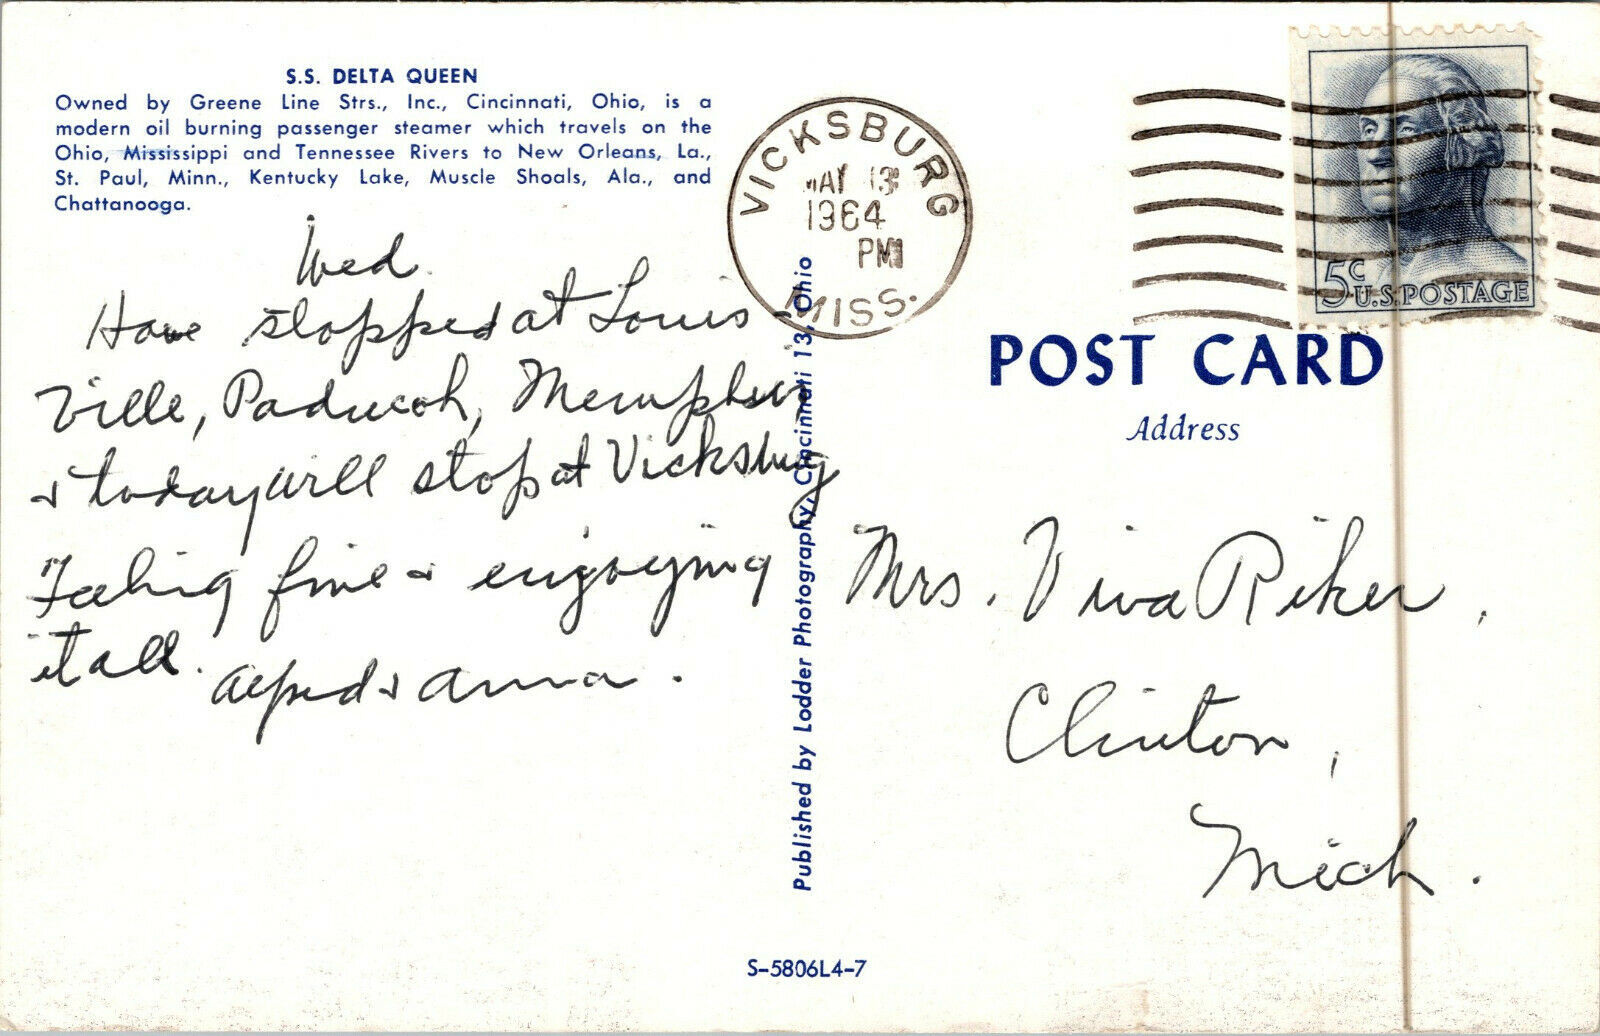 S.S. DELTA QUEEN
Owned by Greene Line Strs., Inc., Cincinnati, Ohio, is a
modern oil burning passenger steamer which travels on the
Ohio, Mississippi and Tennessee Rivers to New Orleans, La.,
St. Paul, Minn., Kentucky Lake, Muscle Shoals, Ala., and
Chattanooga.
Wed.
Have stopped at Louis-
ville, Paducah, Memphis
& today will stop at Vicksburg
Feeling fine & enjoying
it all.
Alfred & Anna.
Published by Lodder Photography, Cincinnati 13, Ohio
VICKSBURG
MAY 13
1964
PM
MISS.
5c U.S. POSTAGE
POST CARD
Address
Mrs. Viva Riker,
Clinton,
Mich.
S-5806L4-7